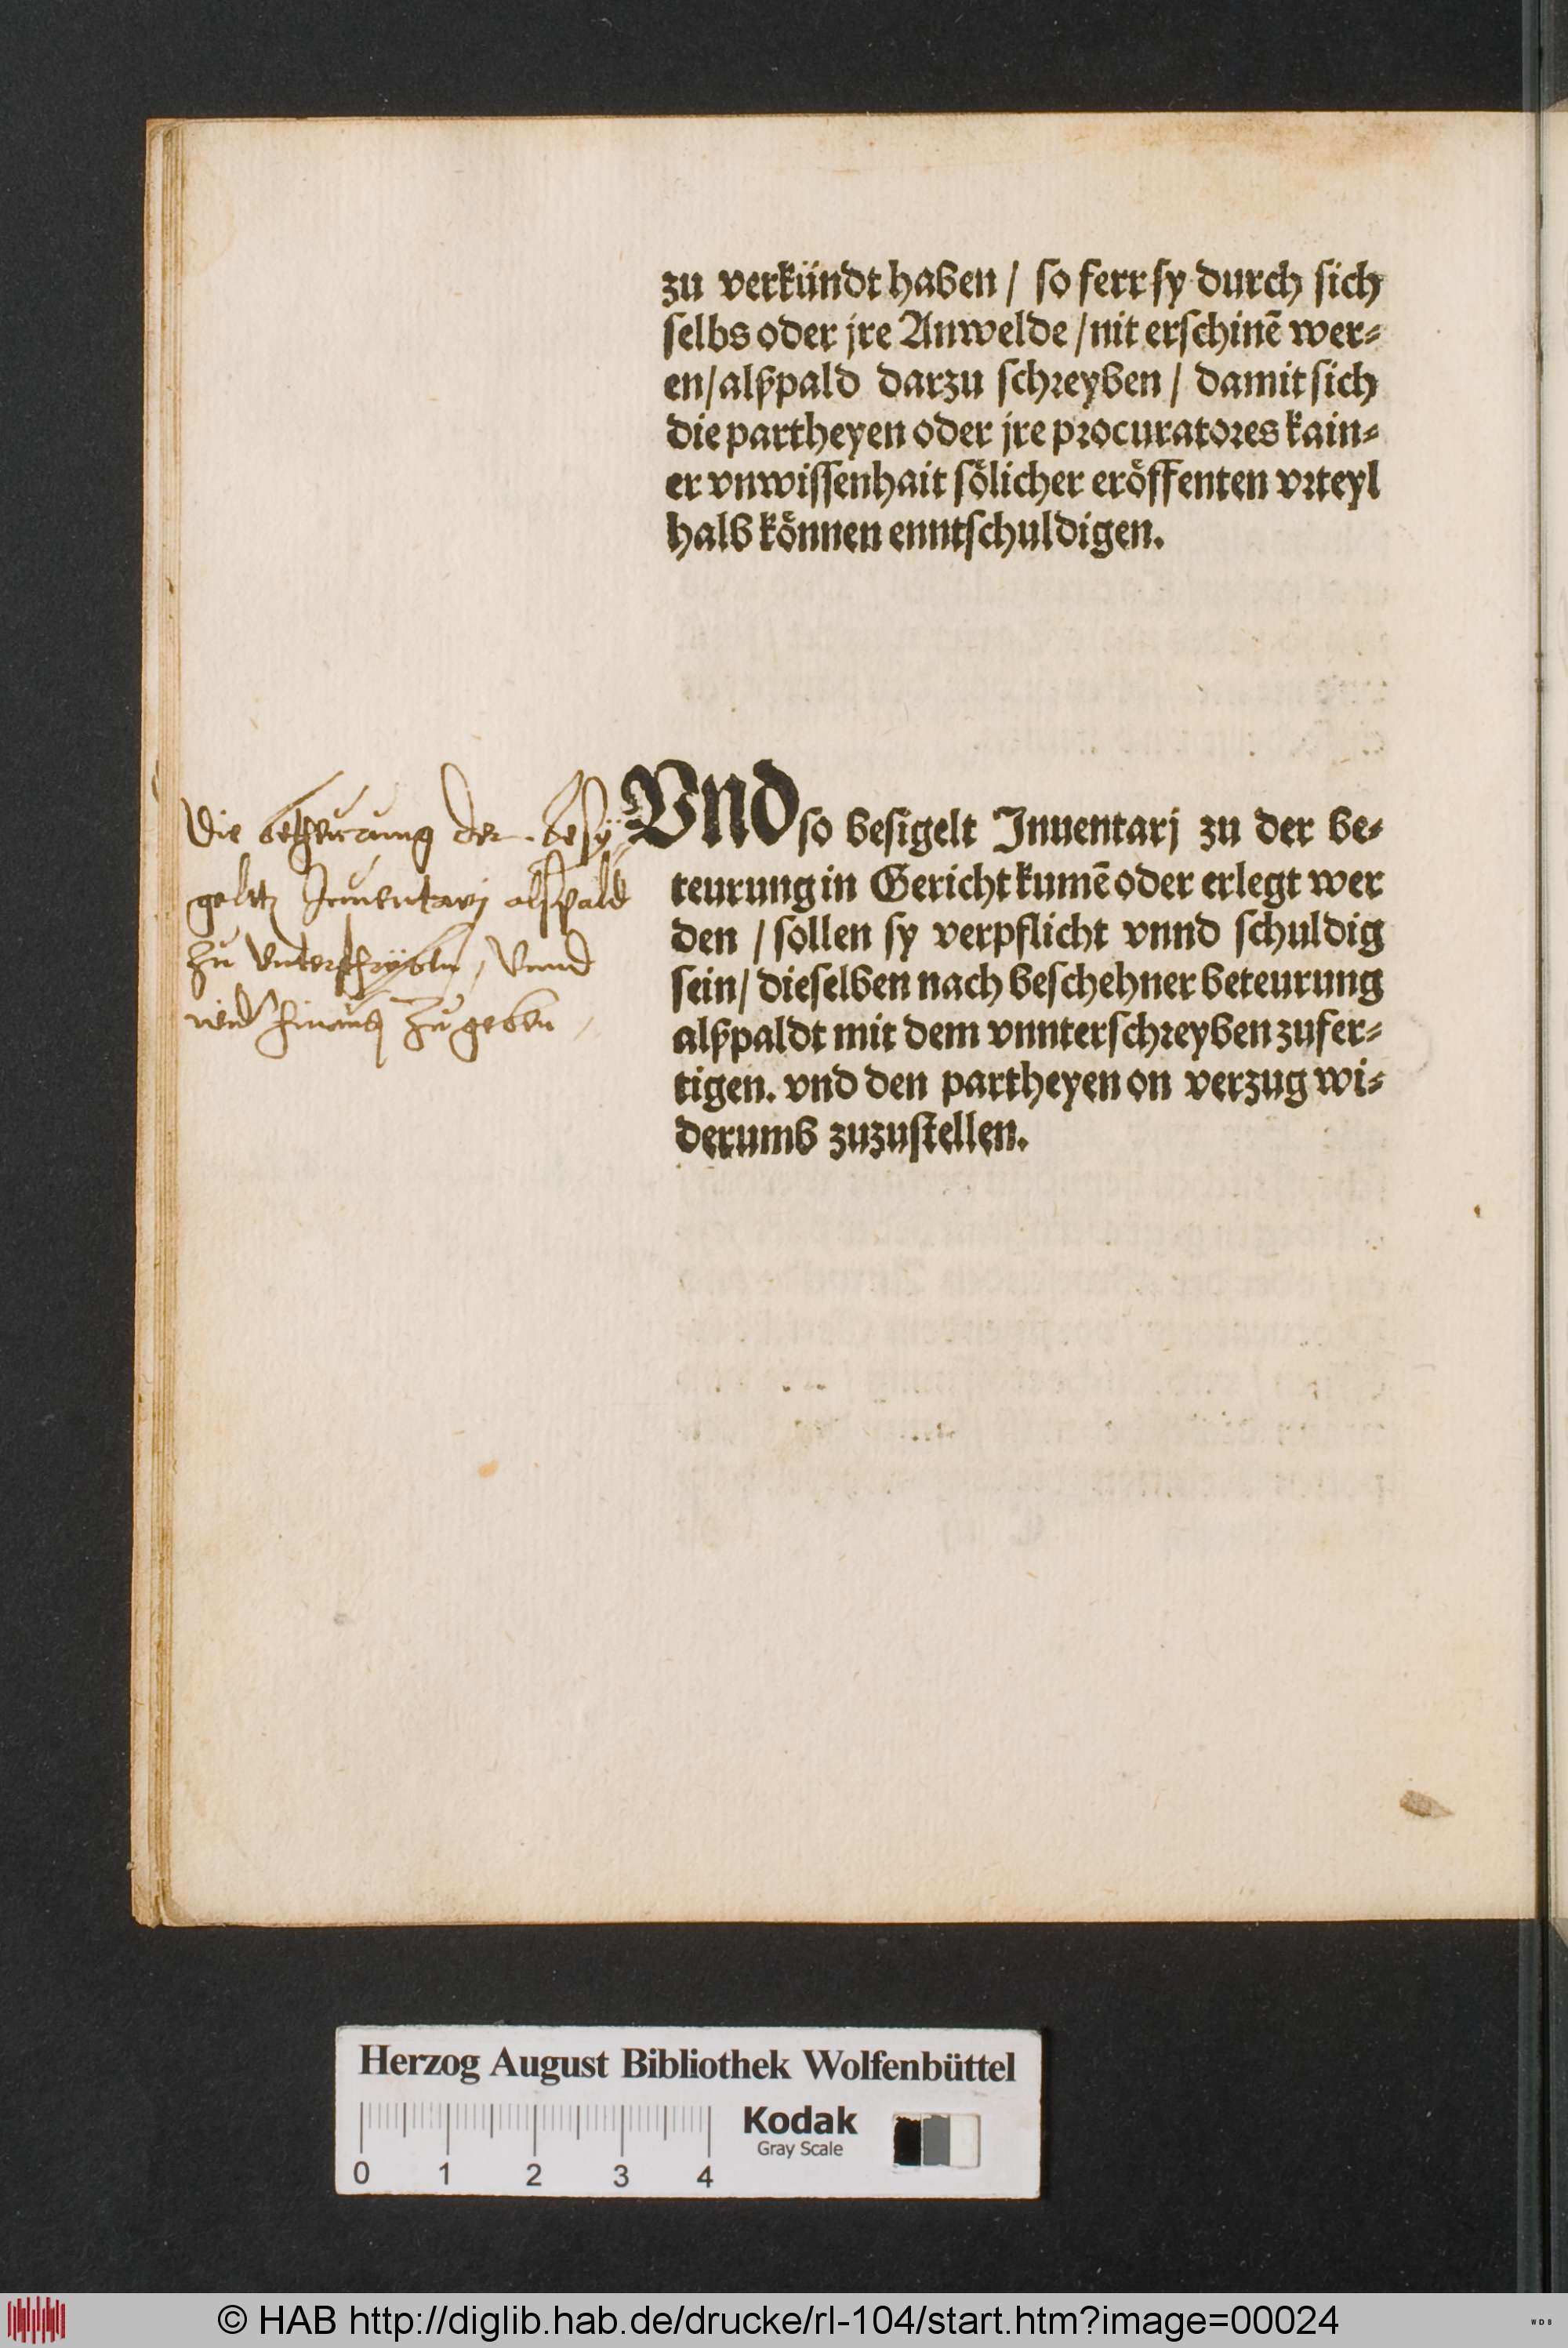 zu verkündt haben / so ferr sy durch sich
selbs oder jre Anwelde / nit erschinē wer⸗
en / alßpald darzu schreyben / damit sich
die partheyen oder jre procuratores kain⸗
er vnwissenhait sölicher eröffenten vrteyl
halb können enntschuldigen.
Die betheurung der besy⸗
geltt Inuentarj alßpald
zu vnterschryben, vnnd
wid hinauß zu geben,
VNd so besigelt Inuentarj zu der be⸗
teurung in Gericht kumē oder erlegt wer
den / sollen sy verpflicht vnnd schuldig
sein / dieselben nach beschehner beteurung
alßpaldt mit dem vnnterschreyben zufer⸗
tigen. vnd den partheyen on verzug wi⸗
derumb zuzustellen.
Herzog August Bibliothek Wolfenbüttel
Kodak
Gray Scale
0 1 2 3 4
© HAB http://diglib.hab.de/drucke/rl-104/start.htm?image=00024
WDB